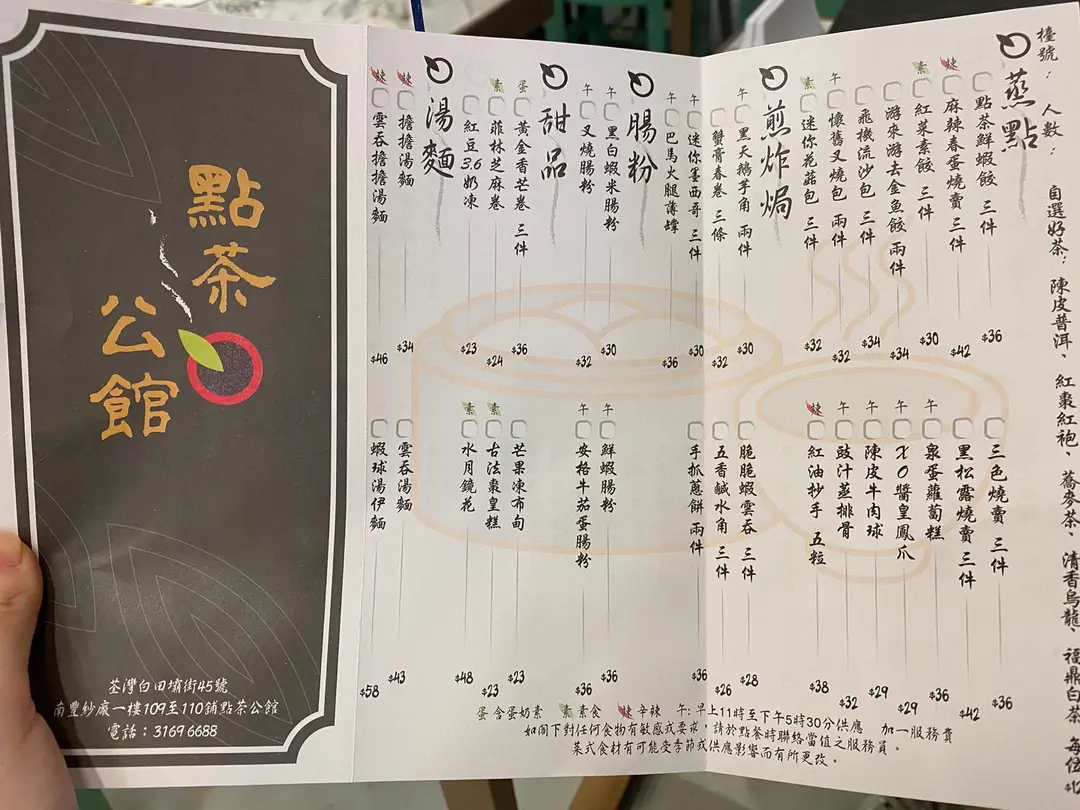 檯號： 人數： 自選好茶：陳皮普洱、紅棗紅袍、蕎麥茶、清香烏龍、福鼎白茶 每位
蒸點
點茶鮮蝦餃 三件 $36
辣 麻辣春蛋燒賣 三件 $42
素 紅菜素餃 三件 $30
游來游去金魚餃 兩件 $34
飛機流沙包 三件 $34
午 懷舊叉燒包 兩件 $32
素 迷你花菇包 三件 $32
三色燒賣 三件 $36
黑松露燒賣 三件 $42
午 泉蛋蘿蔔糕 $36
午 XO醬皇鳳爪 $29
午 陳皮牛肉球 $29
午 豉汁蒸排骨 $32
辣 紅油抄手 五粒 $38
煎炸焗
午 黑天鵝芋角 兩件 $30
蟹膏春卷 三條 $32
午 迷你墨西哥 三件 $30
午 巴馬火腿薄罉 $36
脆脆蝦雲吞 三件 $28
五香鹹水角 三件 $26
手抓蔥餅 兩件 $36
腸粉
午 黑白蝦米腸粉 $30
午 叉燒腸粉 $32
午 鮮蝦腸粉 $36
午 安格牛茄蛋腸粉 $36
甜品
蛋 黃金香芒卷 三件 $36
素 菲林芝麻卷 $24
紅豆3.6奶凍 $23
芒果凍布甸 $23
素 古法棗皇糕 $23
素 水月鏡花 $48
湯麵
辣 擔擔湯麵 $34
辣 雲吞擔擔湯麵 $46
雲吞湯麵 $43
蝦球湯伊麵 $58
蛋 含蛋奶素 素 素食 辣 辛辣 午：早上11時至下午5時30分供應 加一服務費
如閣下對任何食物有敏感或要求，請於點餐時聯絡當值之服務員。
菜式食材有可能受季節或供應影響而有所更改。
點茶
公館
荃灣白田壩街45號
南豐紗廠一樓109至110舖點茶公館
電話：3169 6688